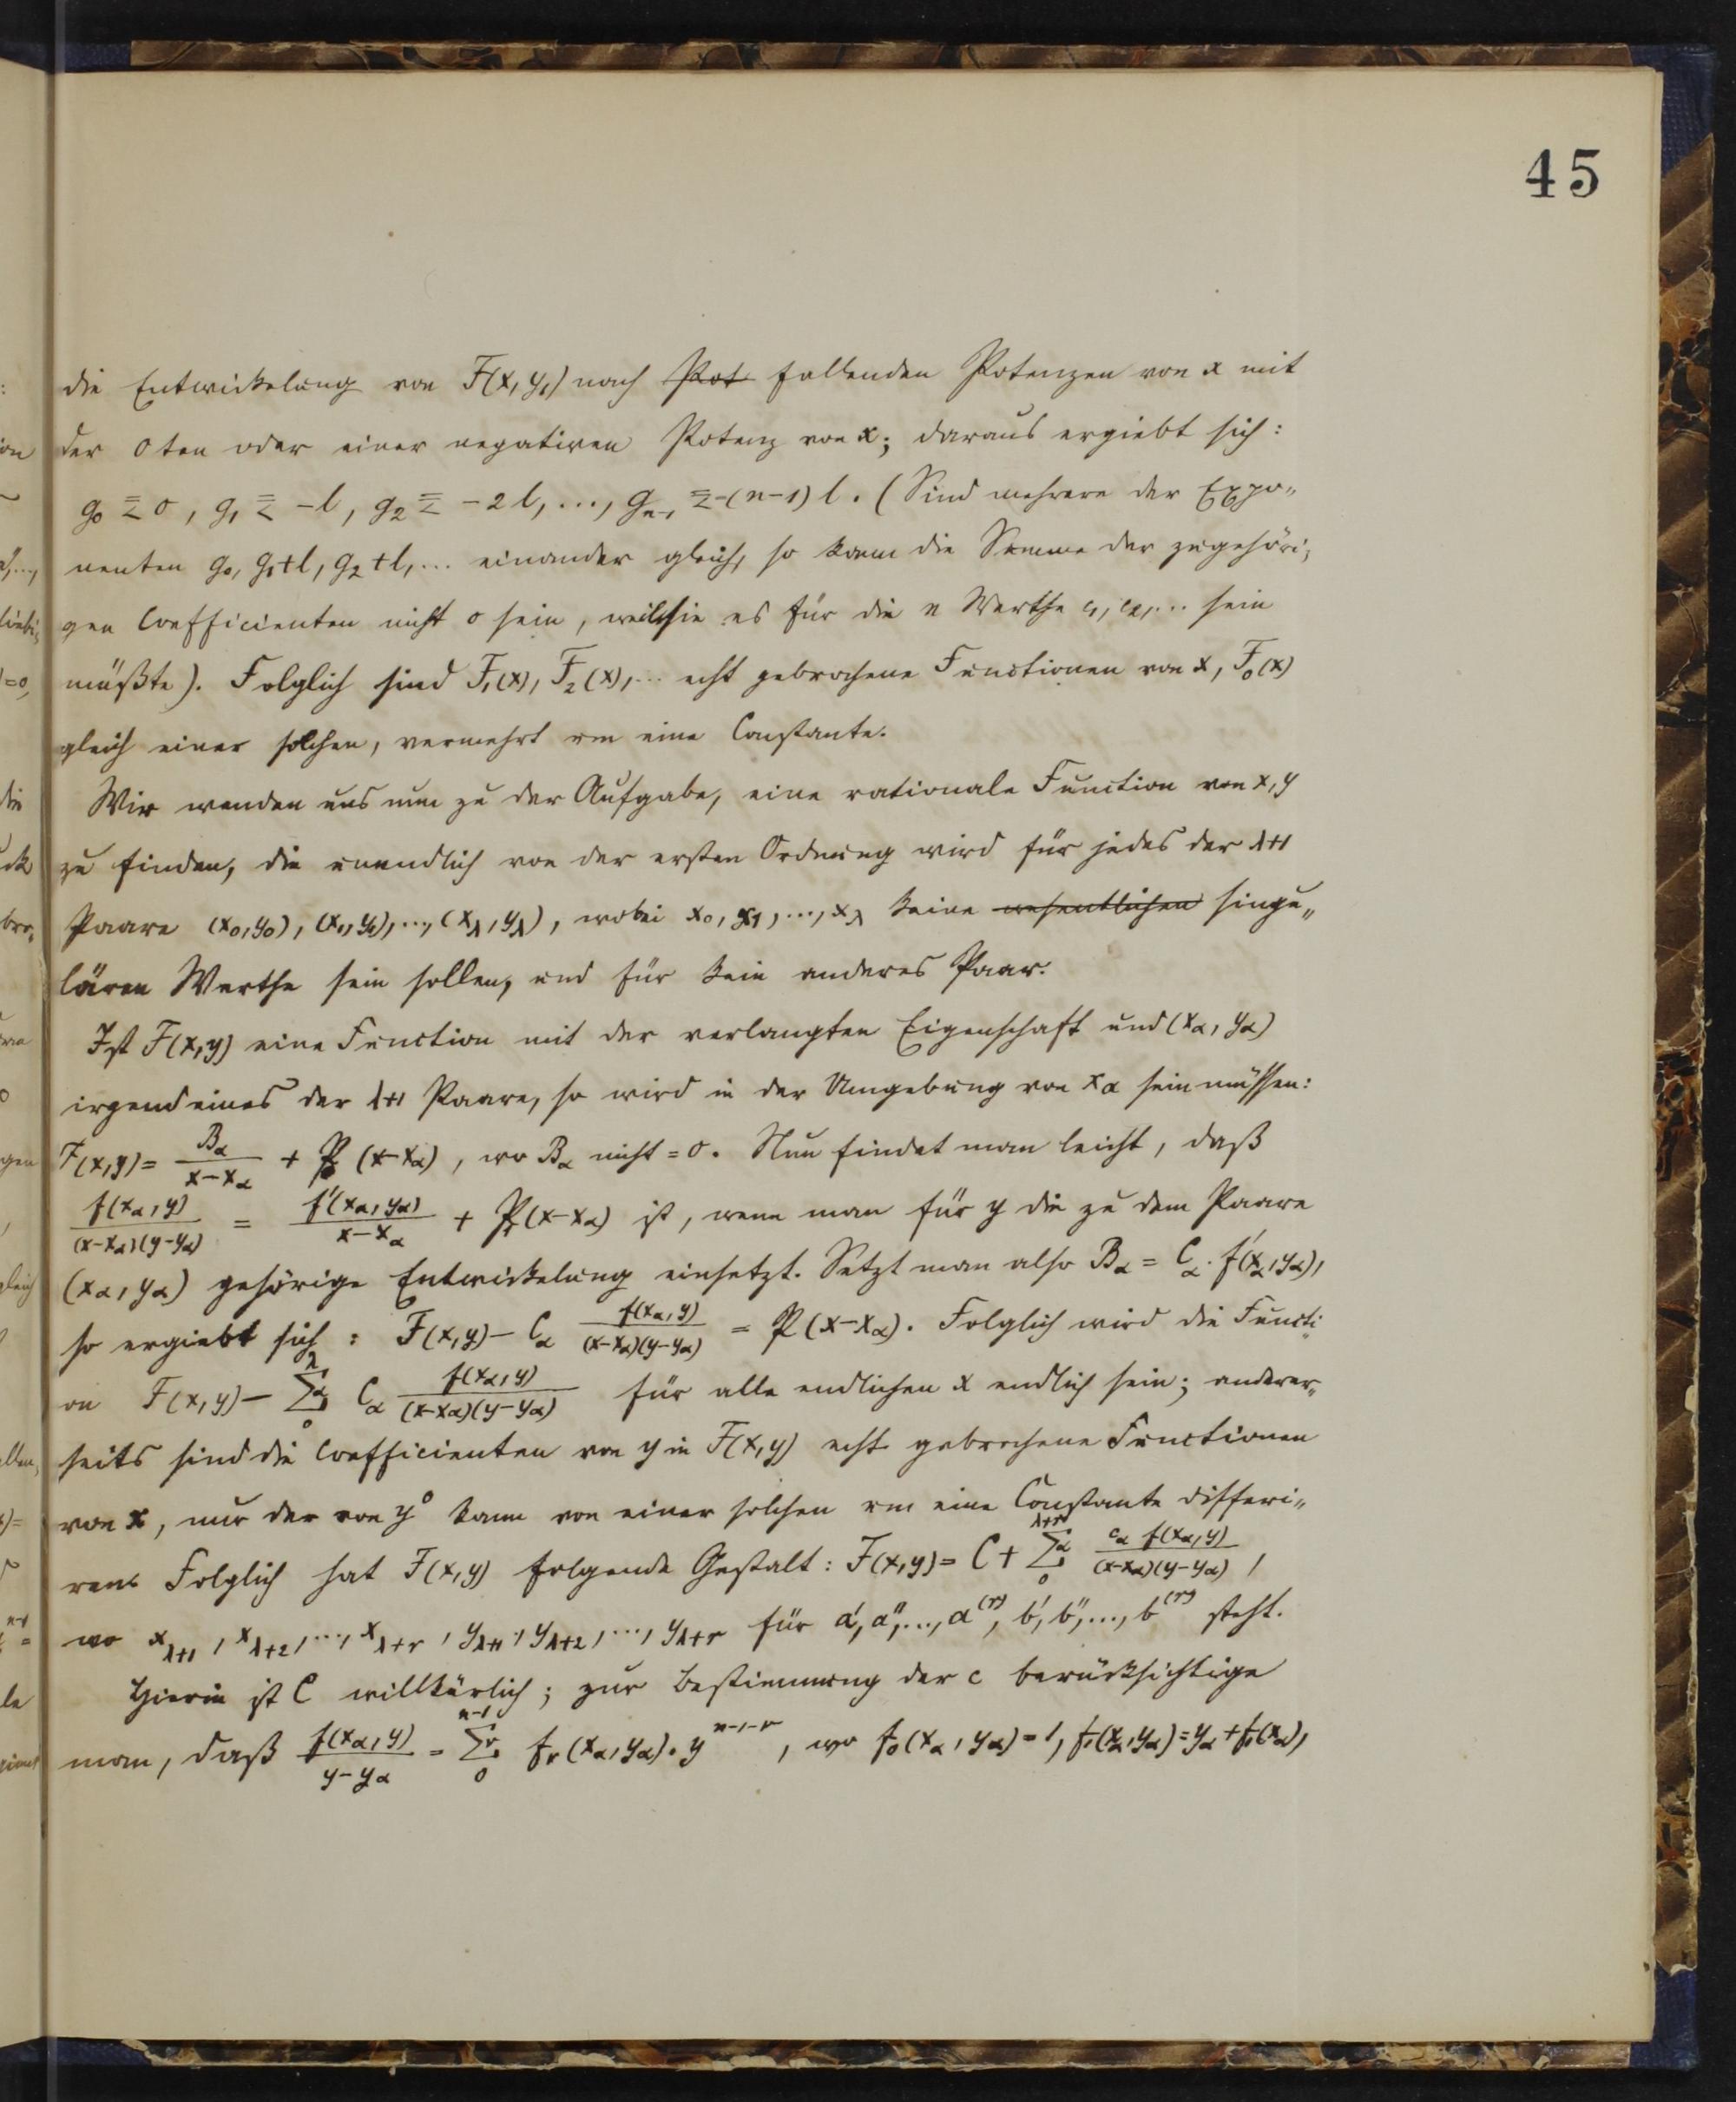 45
die Entwickelung von F(x, y₁) nach ~~Pot~~ fallenden Potenzen von x mit
der 0ten oder einer negativen Potenz von x; daraus ergiebt sich:
g₀ ≦ 0, g₁ ≦ -l, g₂ ≦ -2l, ..., gₙ₋₁ ≦ -(n-1)l. (Sind mehrere der Expo„
nenten g₀, g₁+l, g₂+l, ... einander gleich, so kann die Summe der zugehöri„
gen Coefficienten nicht 0 sein, weil sie es für die n Werthe c₁, c₂, ... sein
müßte). Folglich sind F₁(x), F₂(x), ... echt gebrochene Functionen von x, F₀(x)
gleich einer solchen, vermehrt um eine Constante.
Wir wenden uns nun zu der Aufgabe, eine rationale Function von x, y
zu finden, die unendlich von der ersten Ordnung wird für jedes der λ+1
Paare (x₀, y₀), (x₁, y₁), ..., (x_λ, y_λ), wobei x₀, x₁, ..., x_λ keine ~~wesentlichen~~ singu„
lären Werthe sein sollen, und für kein anderes Paar.
Ist F(x, y) eine Function mit der verlangten Eigenschaft und (x_α, y_α)
irgend eines der λ+1 Paare, so wird in der Umgebung von x_α sein müssen:
F(x, y) = B_α/(x-x_α) + P(x-x_α), wo B_α nicht = 0. Nun findet man leicht, daß
f(x_α, y)/((x-x_α)(y-y_α)) = f'(x_α, y_α)/(x-x_α) + P₁(x-x_α) ist, wenn man für y die zu dem Paare
(x_α, y_α) gehörige Entwickelung einsetzt. Setzt man also B_α = C_α · f'(x_α, y_α),
so ergiebt sich: F(x, y) - C_α f(x_α, y)/((x-x_α)(y-y_α)) = P(x-x_α). Folglich wird die Functi„
on F(x, y) - Σ_α₀^λ C_α f(x_α, y)/((x-x_α)(y-y_α)) für alle endlichen x endlich sein; anderer„
seits sind die Coefficienten von y in F(x, y) echt gebrochene Functionen
von x, nur der von y⁰ kann von einer solchen um eine Constante differi„
ren. Folglich hat F(x, y) folgende Gestalt: F(x, y) = C + Σ_α₀^{λ+r} c_α f(x_α, y)/((x-x_α)(y-y_α)),
wo x_{λ+1}, x_{λ+2}, ..., x_{λ+r}, y_{λ+1}, y_{λ+2}, ..., y_{λ+r} für a', a'', ..., a^{(r)}, b', b'', ..., b^{(r)} steht.
Hierin ist C willkürlich; zur Bestimmung der c berücksichtige
man, daß f(x_α, y)/(y-y_α) = Σ_ν₀^{n-1} f_ν(x_α, y_α) · y^{n-1-ν}, wo f₀(x_α, y_α) = 1, f₁(x_α, y_α) = y_α + f₁(x_α),